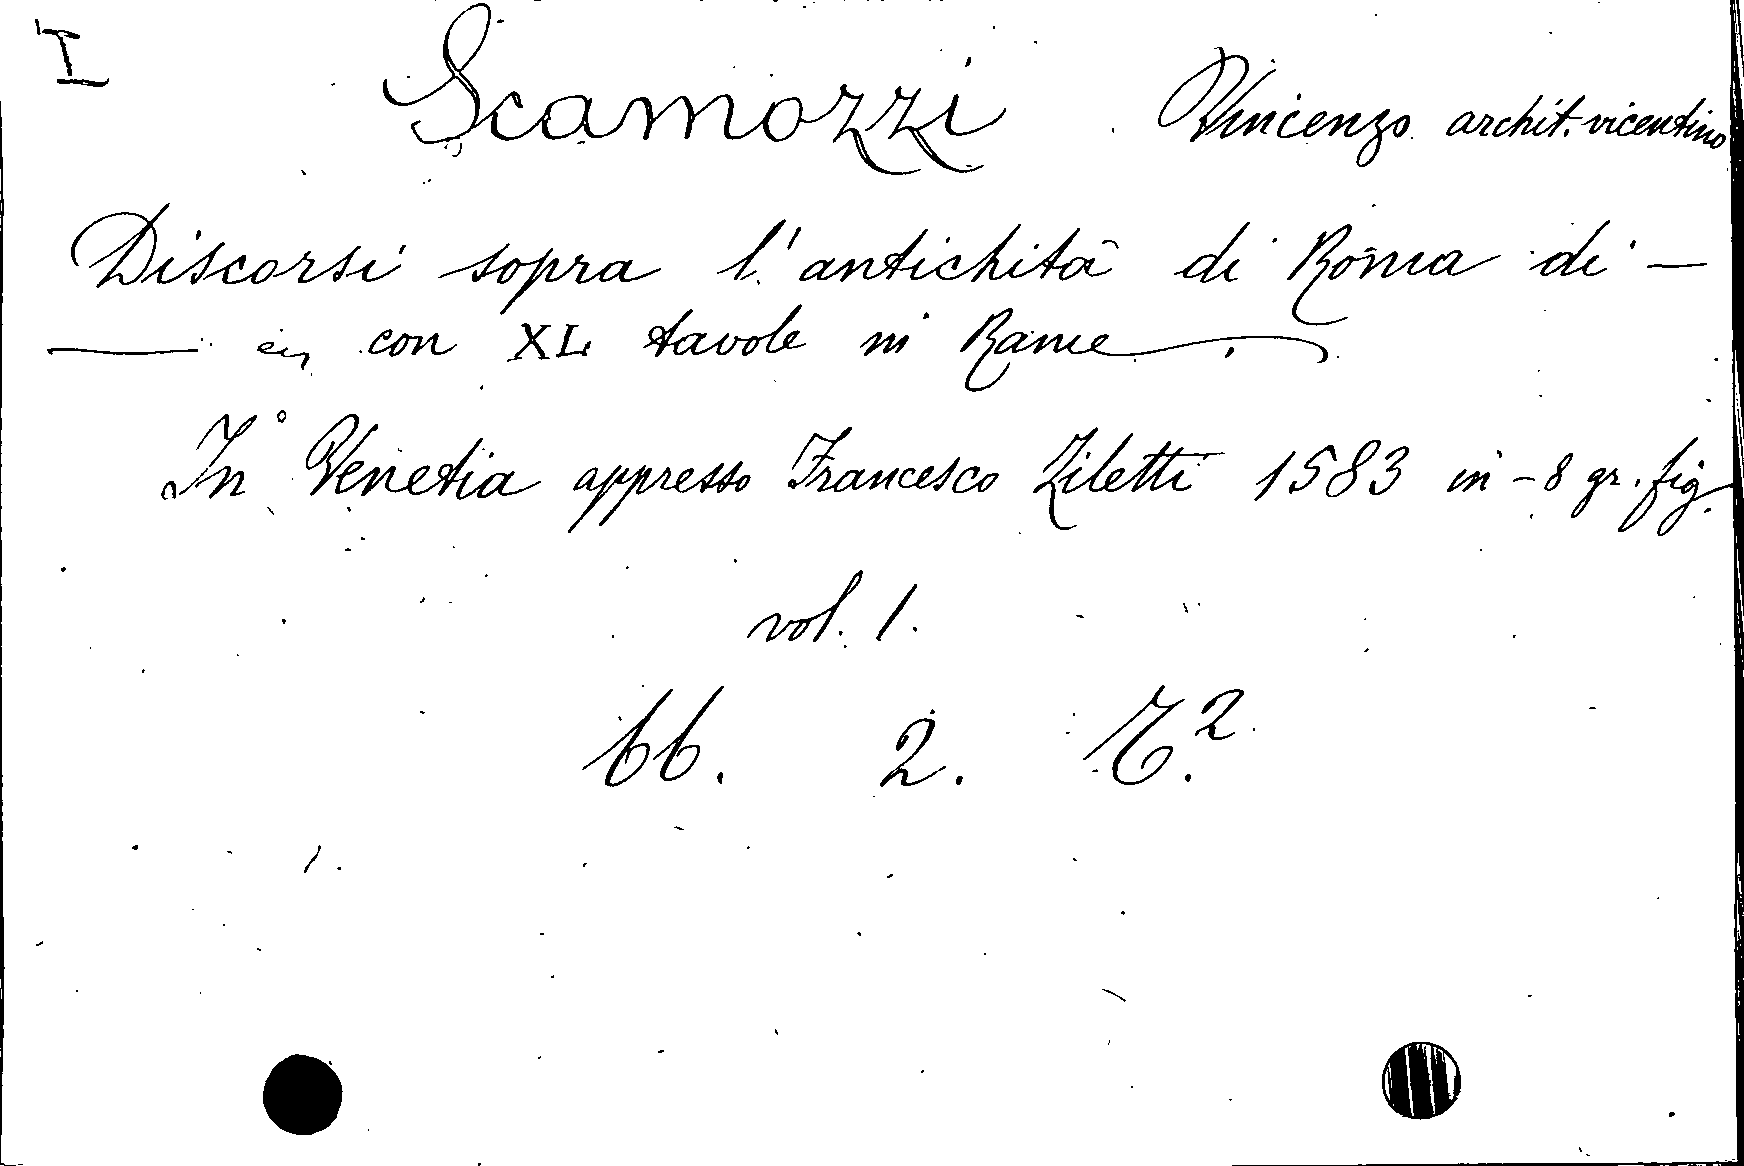 I
Scamozzi Vincenzo archit. vicentino
Discorsi sopra l'antichità di Roma di —
— con XL tavole in Rame.
In Venetia appresso Francesco Ziletti 1583 in-8 gr. fig.
vol. 1.
bb. 2.